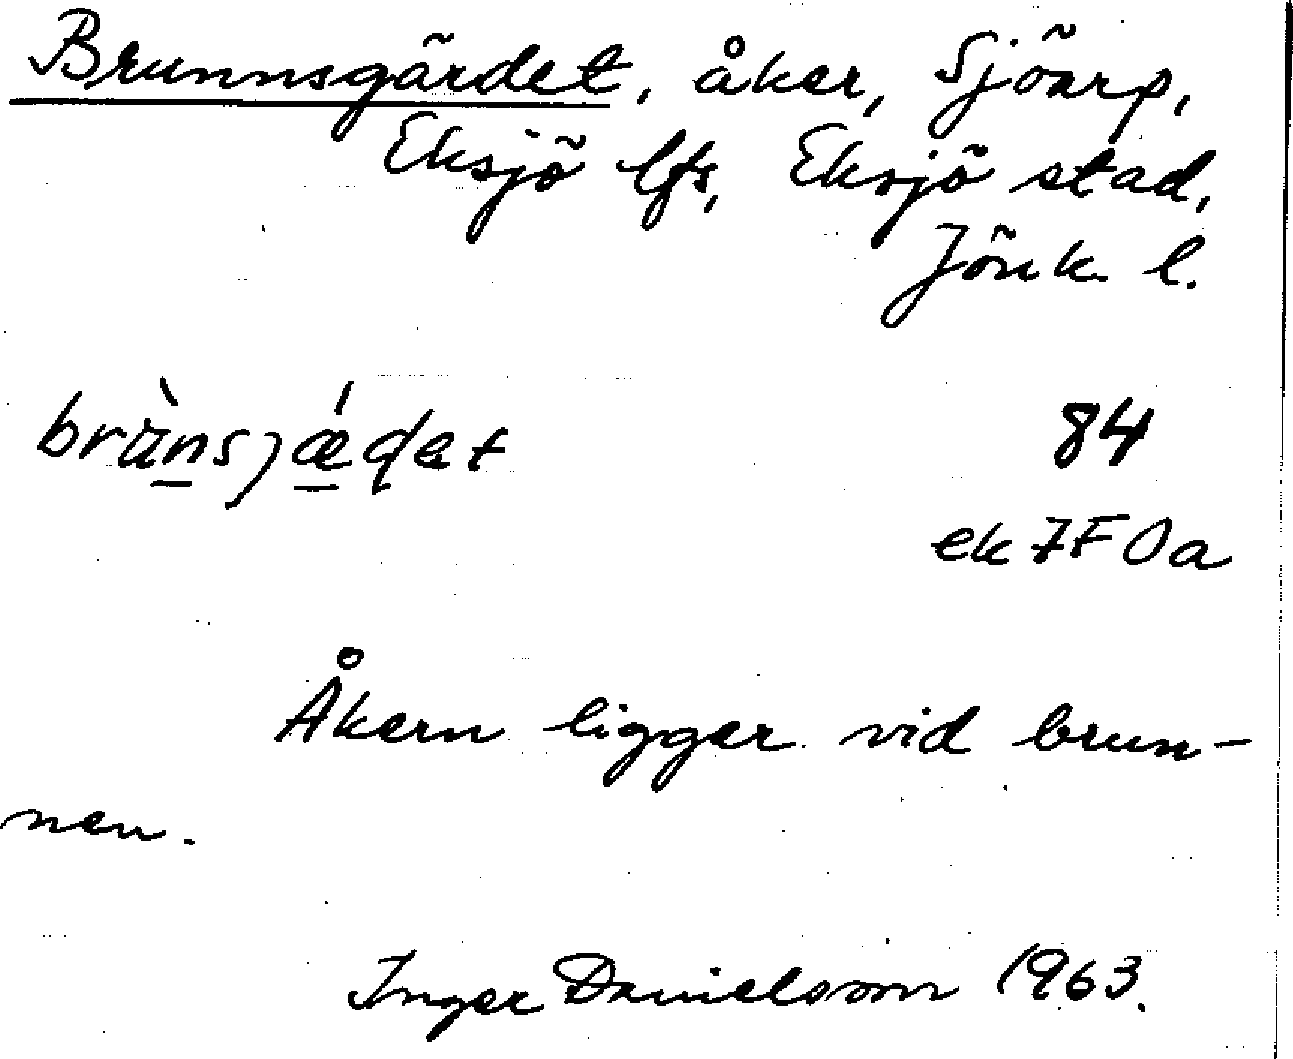 Brunnsgärdet, åker, Sjöarp,
Eksjö lfs, Eksjö stad,
Jönk. l.
brùnsjǽdet 84
ek 7F 0a
Åkern ligger vid brun-
nen.
Inger Danielsson 1963.